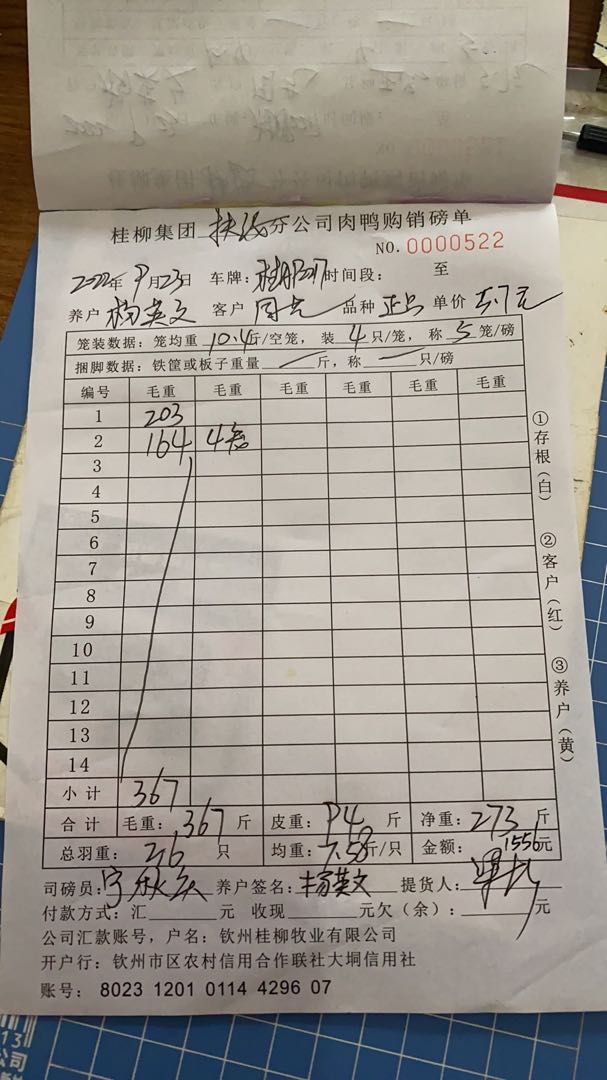 0000522
桂柳集团 扶绥 分公司肉鸭购销磅单
NO. 0000522
2022年 9月23日 车牌： 时间段： 至
养户 杨英文 客户 品种 正品 单价 5.7元
笼装数据：笼均重 10.4 斤/空笼，装 4 只/笼，称 5 笼/磅
捆脚数据：铁筐或板子重量 斤，称 只/磅
编号 毛重 毛重 毛重 毛重 毛重 毛重
1 203
2 164 4笼
3
4
5
6
7
8
9
10
11
12
13
14
小计 367
合计 毛重：367 斤 皮重：94 斤 净重：273 斤
总羽重：36 只 均重：7.58 斤/只 金额：1556元
司磅员： 养户签名：杨英文 提货人：
付款方式：汇 元 收现 元欠（余）： 元
公司汇款账号，户名：钦州桂柳牧业有限公司
开户行：钦州市区农村信用合作联社大垌信用社
账号：8023 1201 0114 4296 07
①存根（白）
②客户（红）
③养户（黄）
13
公司